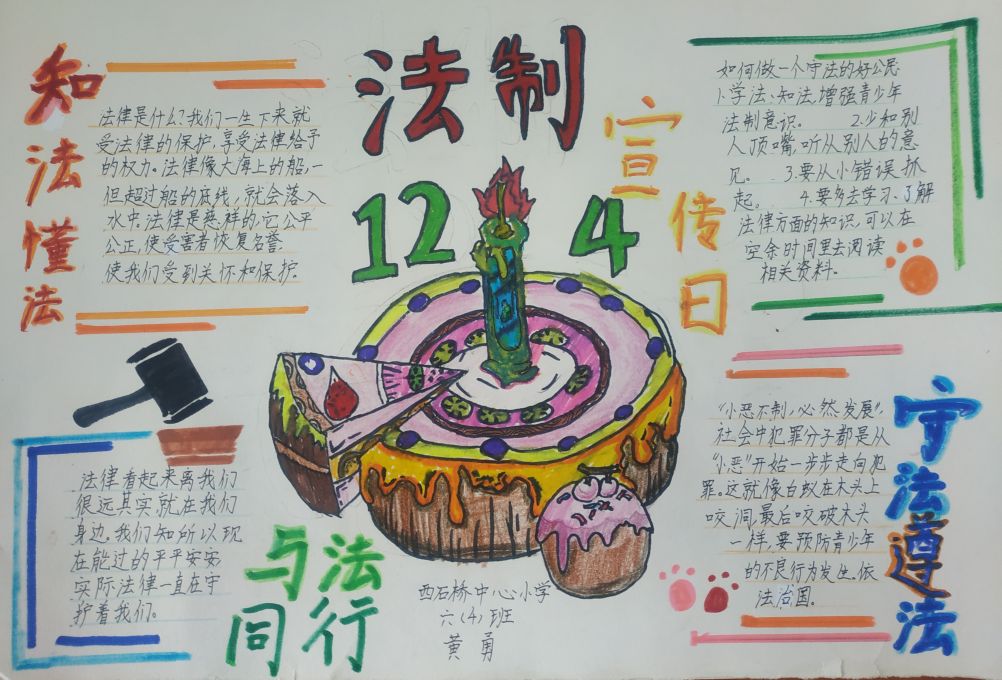 法制
12 4
宣传日
知法懂法
法律是什么?我们一生下来就
受法律的保护,享受法律给予
的权力。法律像大海上的船,一
但超过船的底线,就会落入
水中。法律是慈祥的,它公平
公正,使受害者恢复名誉.
使我们受到关怀和保护.
如何做一个守法的好公民
1、学法、知法,增强青少年
法制意识。 2.少和别
人顶嘴,听从别人的意
见。 3.要从小错误抓
起。 4.要多去学习、了解
法律方面的知识,可以在
空余时间里去阅读
相关资料。
法律看起来离我们
很远其实就在我们
身边。我们知所以现
在能过的平平安安,
实际法律一直在守
护着我们。
与法同行
西石桥中心小学
六(4)班
黄甬
“小恶不制,必然发展”,
社会中犯罪分子都是从
“小恶”开始一步步走向犯
罪。这就像白蚁在木头上
咬洞,最后咬破木头
一样,要预防青少年
的不良行为发生。依
法治国。
守法遵法